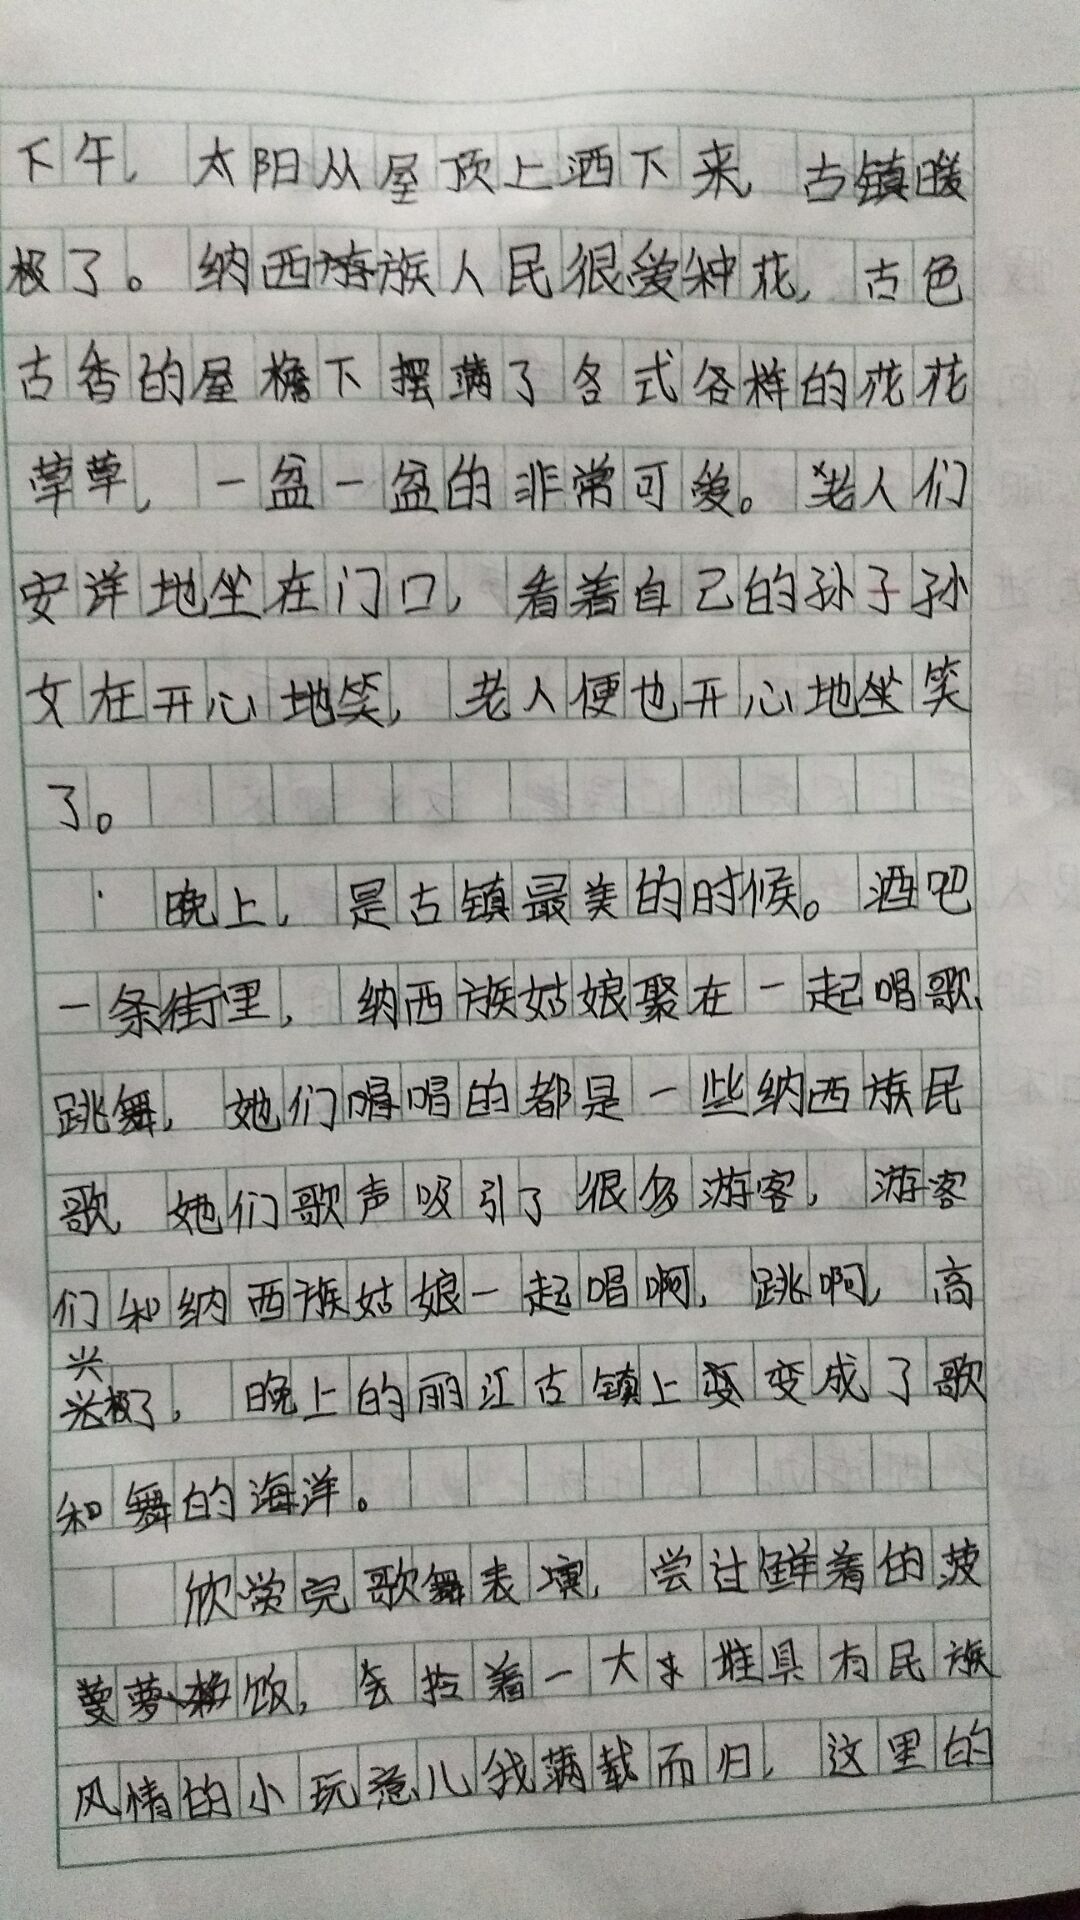 下午，太阳从屋顶上洒下来，古镇暖
极了。纳西族人民很爱种花，古色
古香的屋檐下摆满了各式各样的花花
草草，一盆一盆的非常可爱。老人们
安详地坐在门口，看着自己的孙子孙
女在开心地笑，老人便也开心地坐笑
了。
晚上，是古镇最美的时候。酒吧
一条街里，纳西族姑娘聚在一起唱歌、
跳舞，她们唱唱的都是一些纳西族民
歌，她们歌声吸引了很多游客，游客
们和纳西族姑娘一起唱啊，跳啊，高
兴极了，晚上的丽江古镇上变变成了歌
和舞的海洋。
欣赏完歌舞表演，尝过鲜着的菠
萝萝饭，拎着一大堆具有民族
风情的小玩意儿我满载而归，这里的